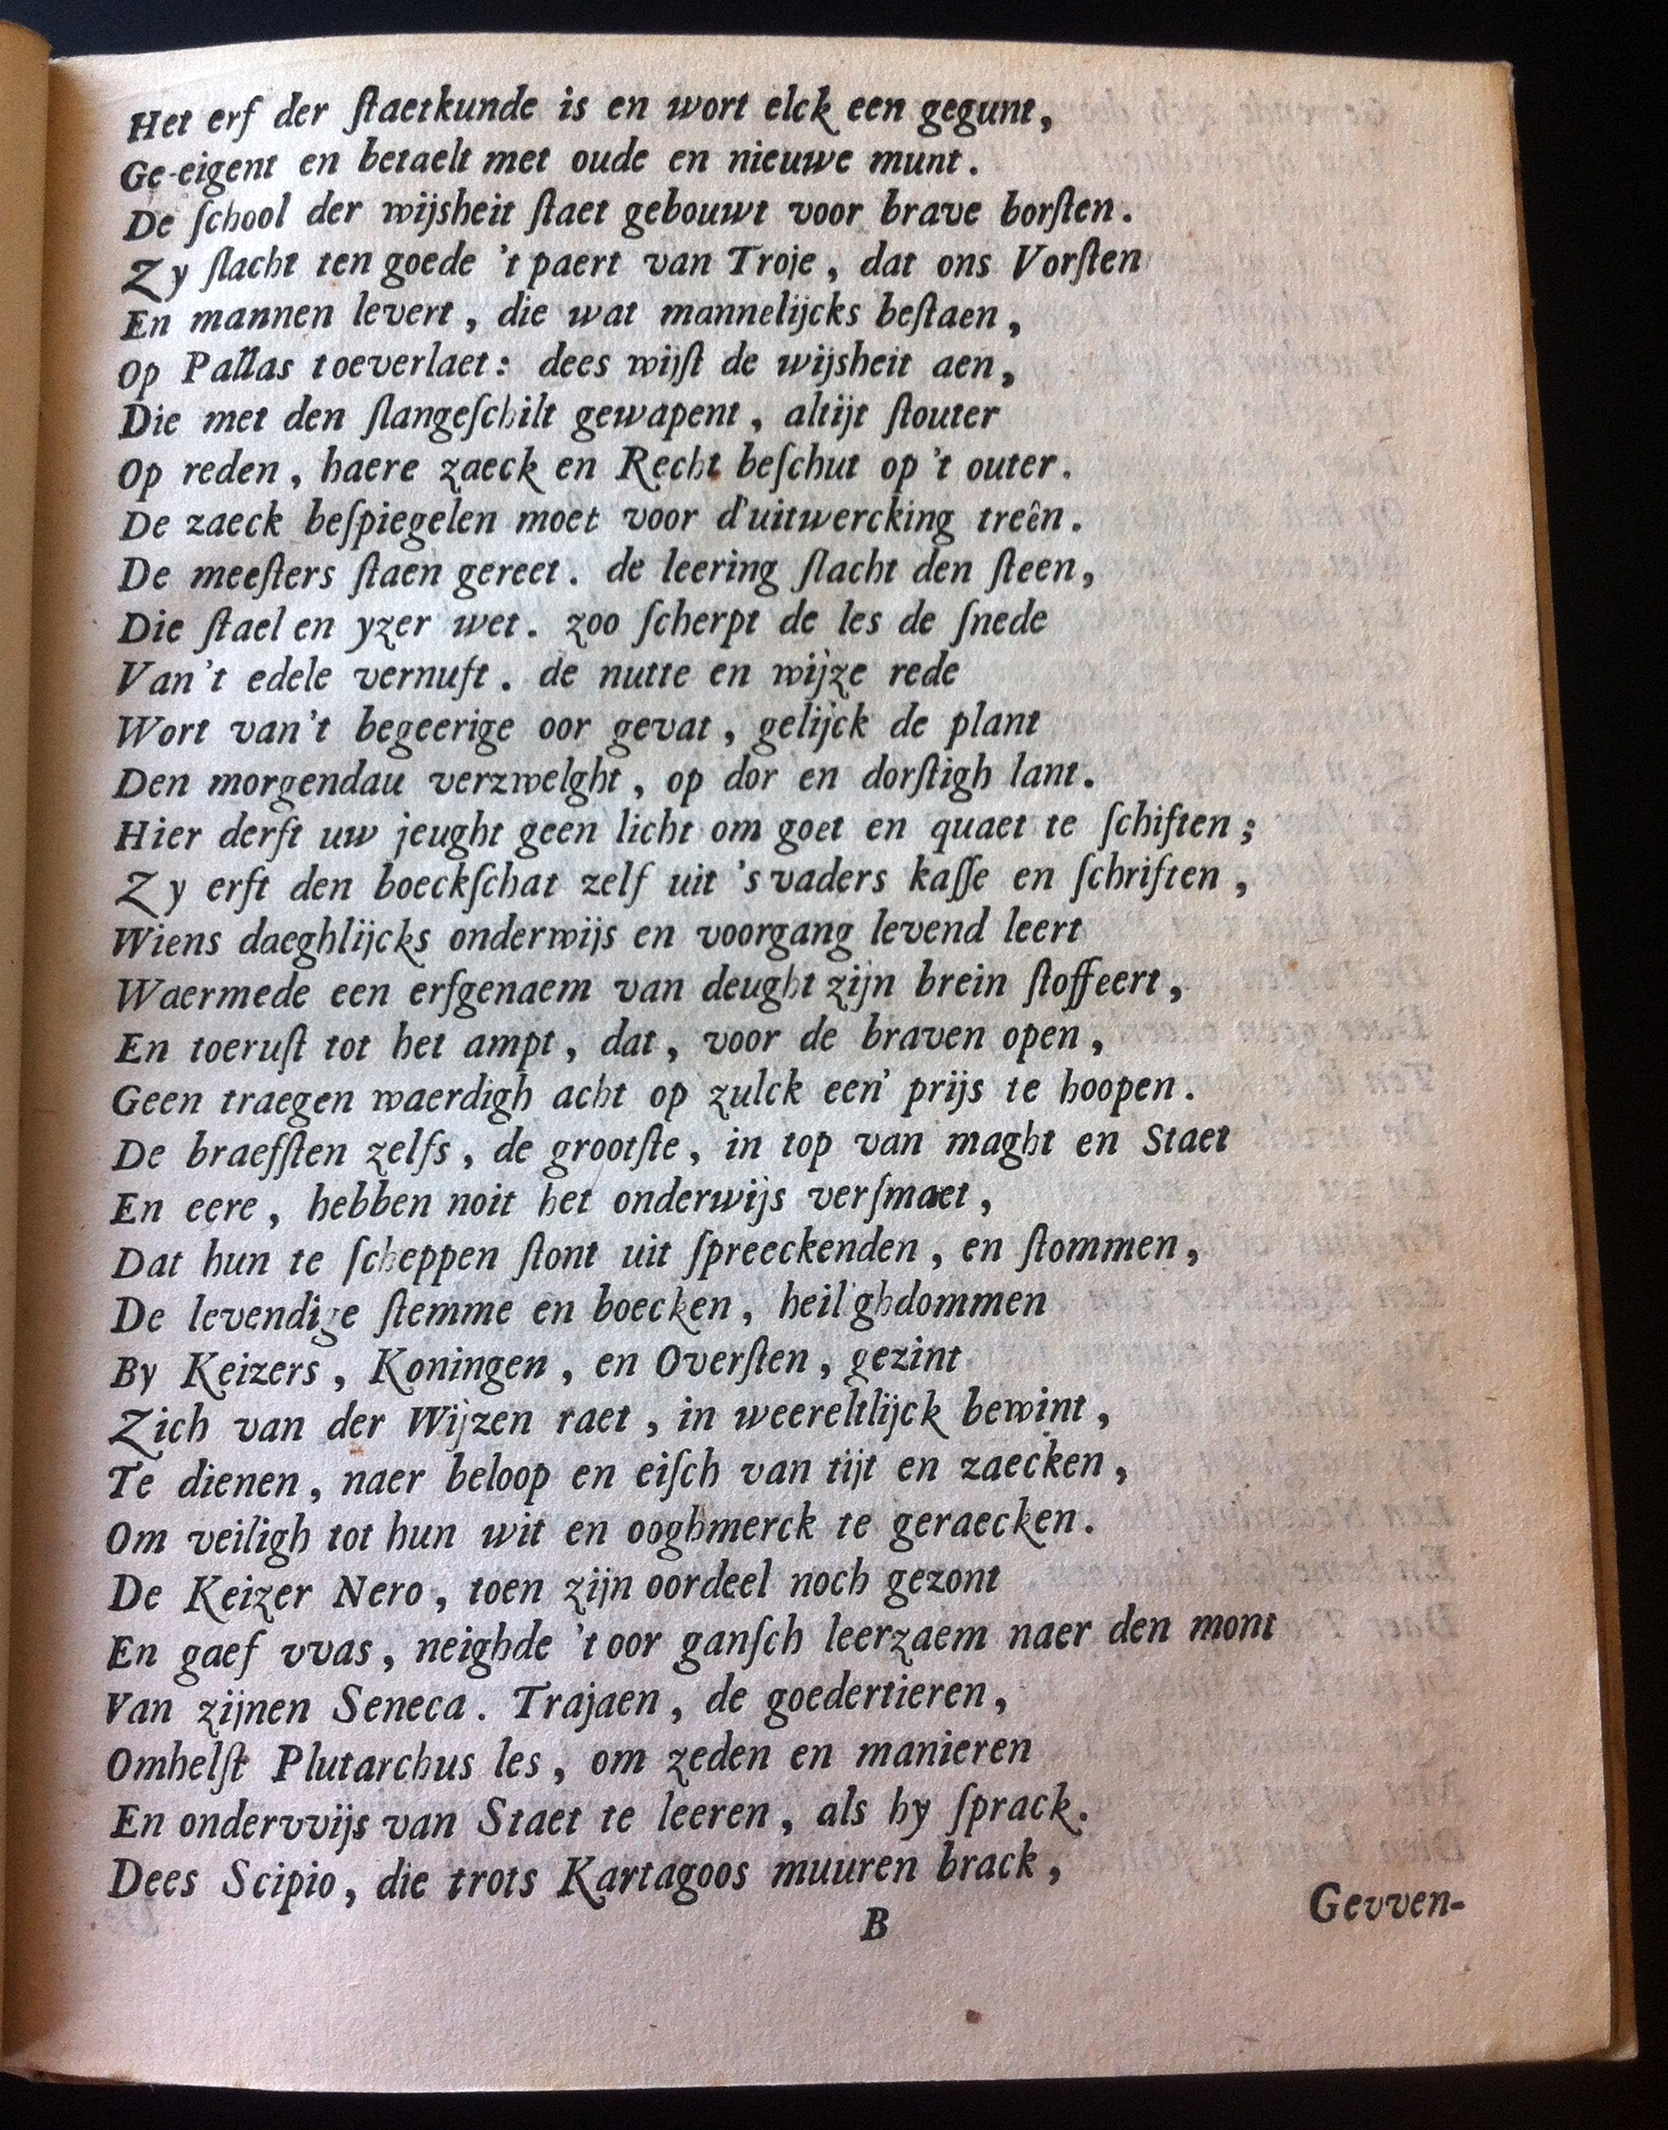 Het erf der ſtaetkunde is en wort elck een gegunt,
Ge-eigent en betaelt met oude en nieuwe munt.
De ſchool der wijsheit ſtaet gebouwt voor brave borſten.
Zy ſlacht ten goede 't paert van Troje, dat ons Vorſten
En mannen levert, die wat mannelijcks beſtaen,
Op Pallas toeverlaet: dees wijſt de wijsheit aen,
Die met den ſlangeſchilt gewapent, altijt ſtouter
Op reden, haere zaeck en Recht beſchut op 't outer.
De zaeck beſpiegelen moet voor d'uitwercking treên.
De meeſters ſtaen gereet. de leering ſlacht den ſteen,
Die ſtael en yzer wet. zoo ſcherpt de les de ſnede
Van 't edele vernuft. de nutte en wijze rede
Wort van 't begeerige oor gevat, gelijck de plant
Den morgendau verzwelght, op dor en dorſtigh lant.
Hier derft uw jeught geen licht om goet en quaet te ſchiften;
Zy erft den boeckſchat zelf uit 's vaders kaſſe en ſchriften,
Wiens daeghlijcks onderwijs en voorgang levend leert
Waermede een erfgenaem van deught zijn brein ſtoffeert,
En toeruſt tot het ampt, dat, voor de braven open,
Geen traegen waerdigh acht op zulck een' prijs te hoopen.
De braefſten zelfs, de grootſte, in top van maght en Staet
En eere, hebben noit het onderwijs verſmaet,
Dat hun te ſcheppen ſtont uit ſpreeckenden, en ſtommen,
De levendige ſtemme en boecken, heilighdommen
By Keizers, Koningen, en Overſten, gezint
Zich van der Wijzen raet, in weereltlijck bewint,
Te dienen, naer beloop en eiſch van tijt en zaecken,
Om veiligh tot hun wit en ooghmerck te geraecken.
De Keizer Nero, toen zijn oordeel noch gezont
En gaef vvas, neighde 't oor ganſch leerzaem naer den mont
Van zijnen Seneca. Trajaen, de goedertieren,
Omhelſt Plutarchus les, om zeden en manieren
En ondervvijs van Staet te leeren, als hy ſprack.
Dees Scipio, die trots Kartagoos muuren brack,
B
Gevven-